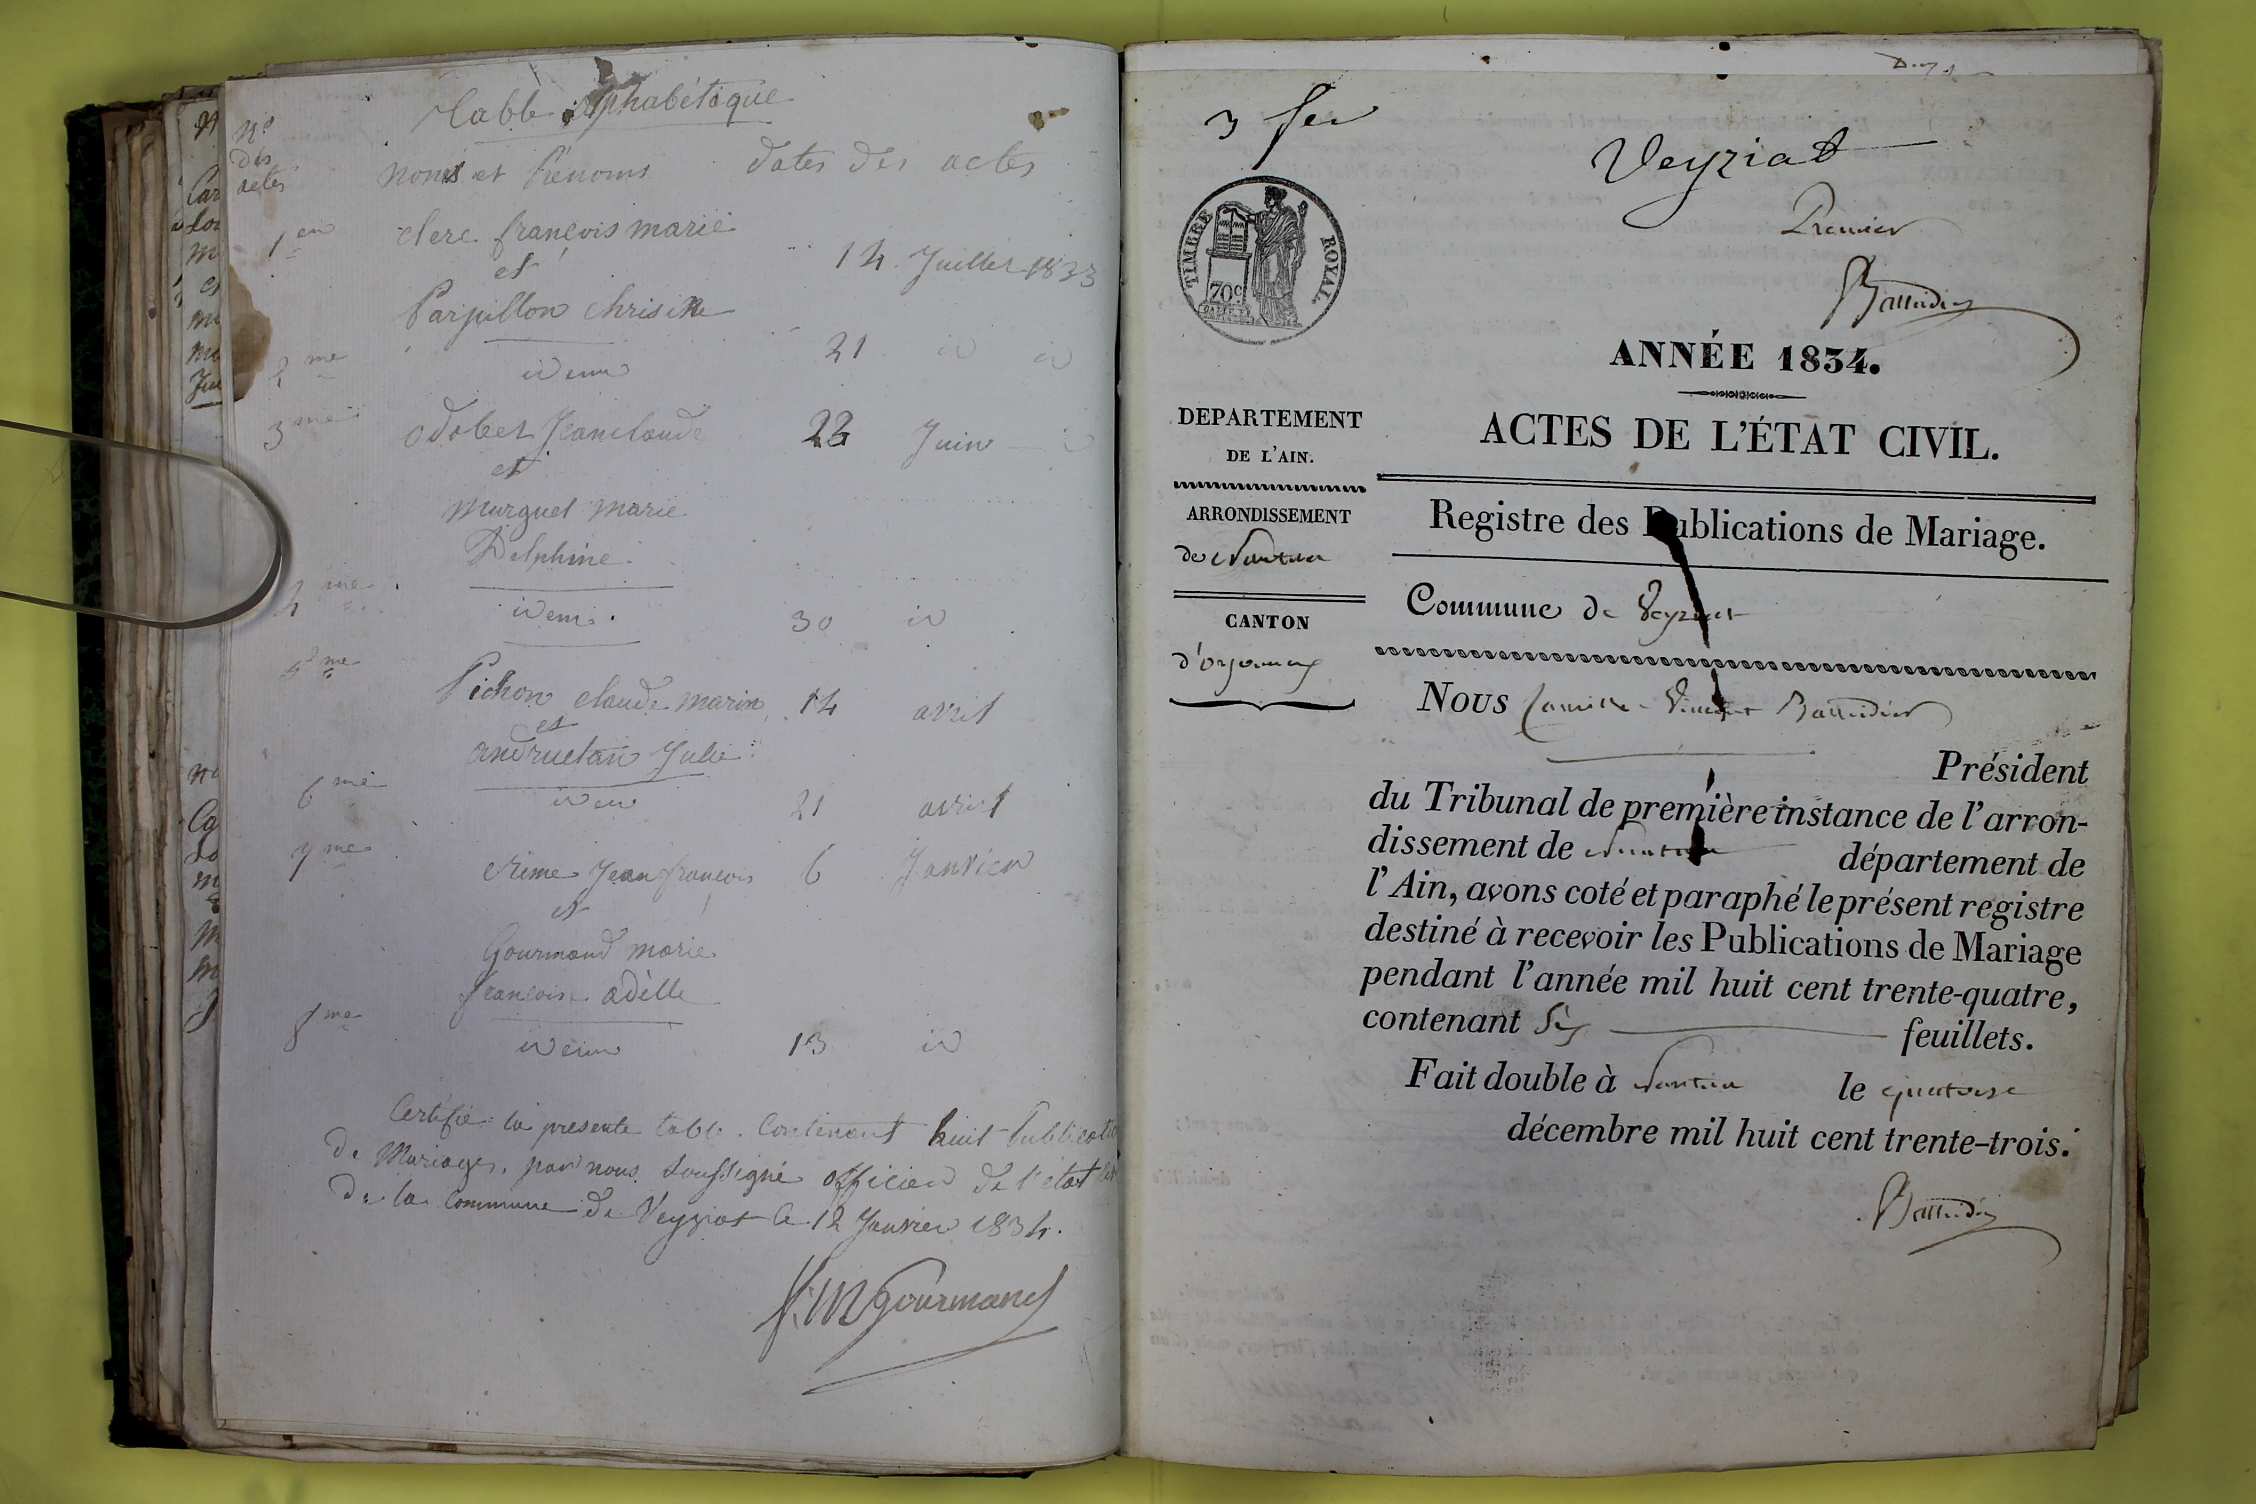 Table alphabétique
Nos
des
actes
noms et Prénoms
dates des actes
1er
clerc françois marie
et
14 Juillet 1833
Parpillon chrisine
2me
idem
21 id id
3me
odobet Jean claude
22 Juin id
et
murguet marie
Delphine
4me
idem.
30 id
5me
Pichon claude marin
14 avril
et
andruetan Julie
6me
idem
21 avril
7me
crime Jean françois
6 Janvier
et
Gourmand marie
françoise adèlle
8me
idem
13 id
Certifié la presente table. Contenant huit Publicatio
De Mariages, par nous soussigné officier de l'état
De la Commune de Veyziat le 12 Janvier 1834.
f. m Gourmand
3 feu
Veyziat
Premier
TIMBRE ROYAL.
70c
ANNÉE 1834.
DEPARTEMENT
DE L'AIN.
ACTES DE L'ÉTAT CIVIL.
ARRONDISSEMENT
de Nantua
Registre des Publications de Mariage.
CANTON
d'oyonnax
Commune de Veyziat
Nous Camille Vincent
Président
du Tribunal de première instance de l'arron-
dissement de Nantua département de
l'Ain, avons coté et paraphé le présent registre
destiné à recevoir les Publications de Mariage
pendant l'année mil huit cent trente-quatre,
contenant Six feuillets.
Fait double à Nantua le quatorze
décembre mil huit cent trente-trois.